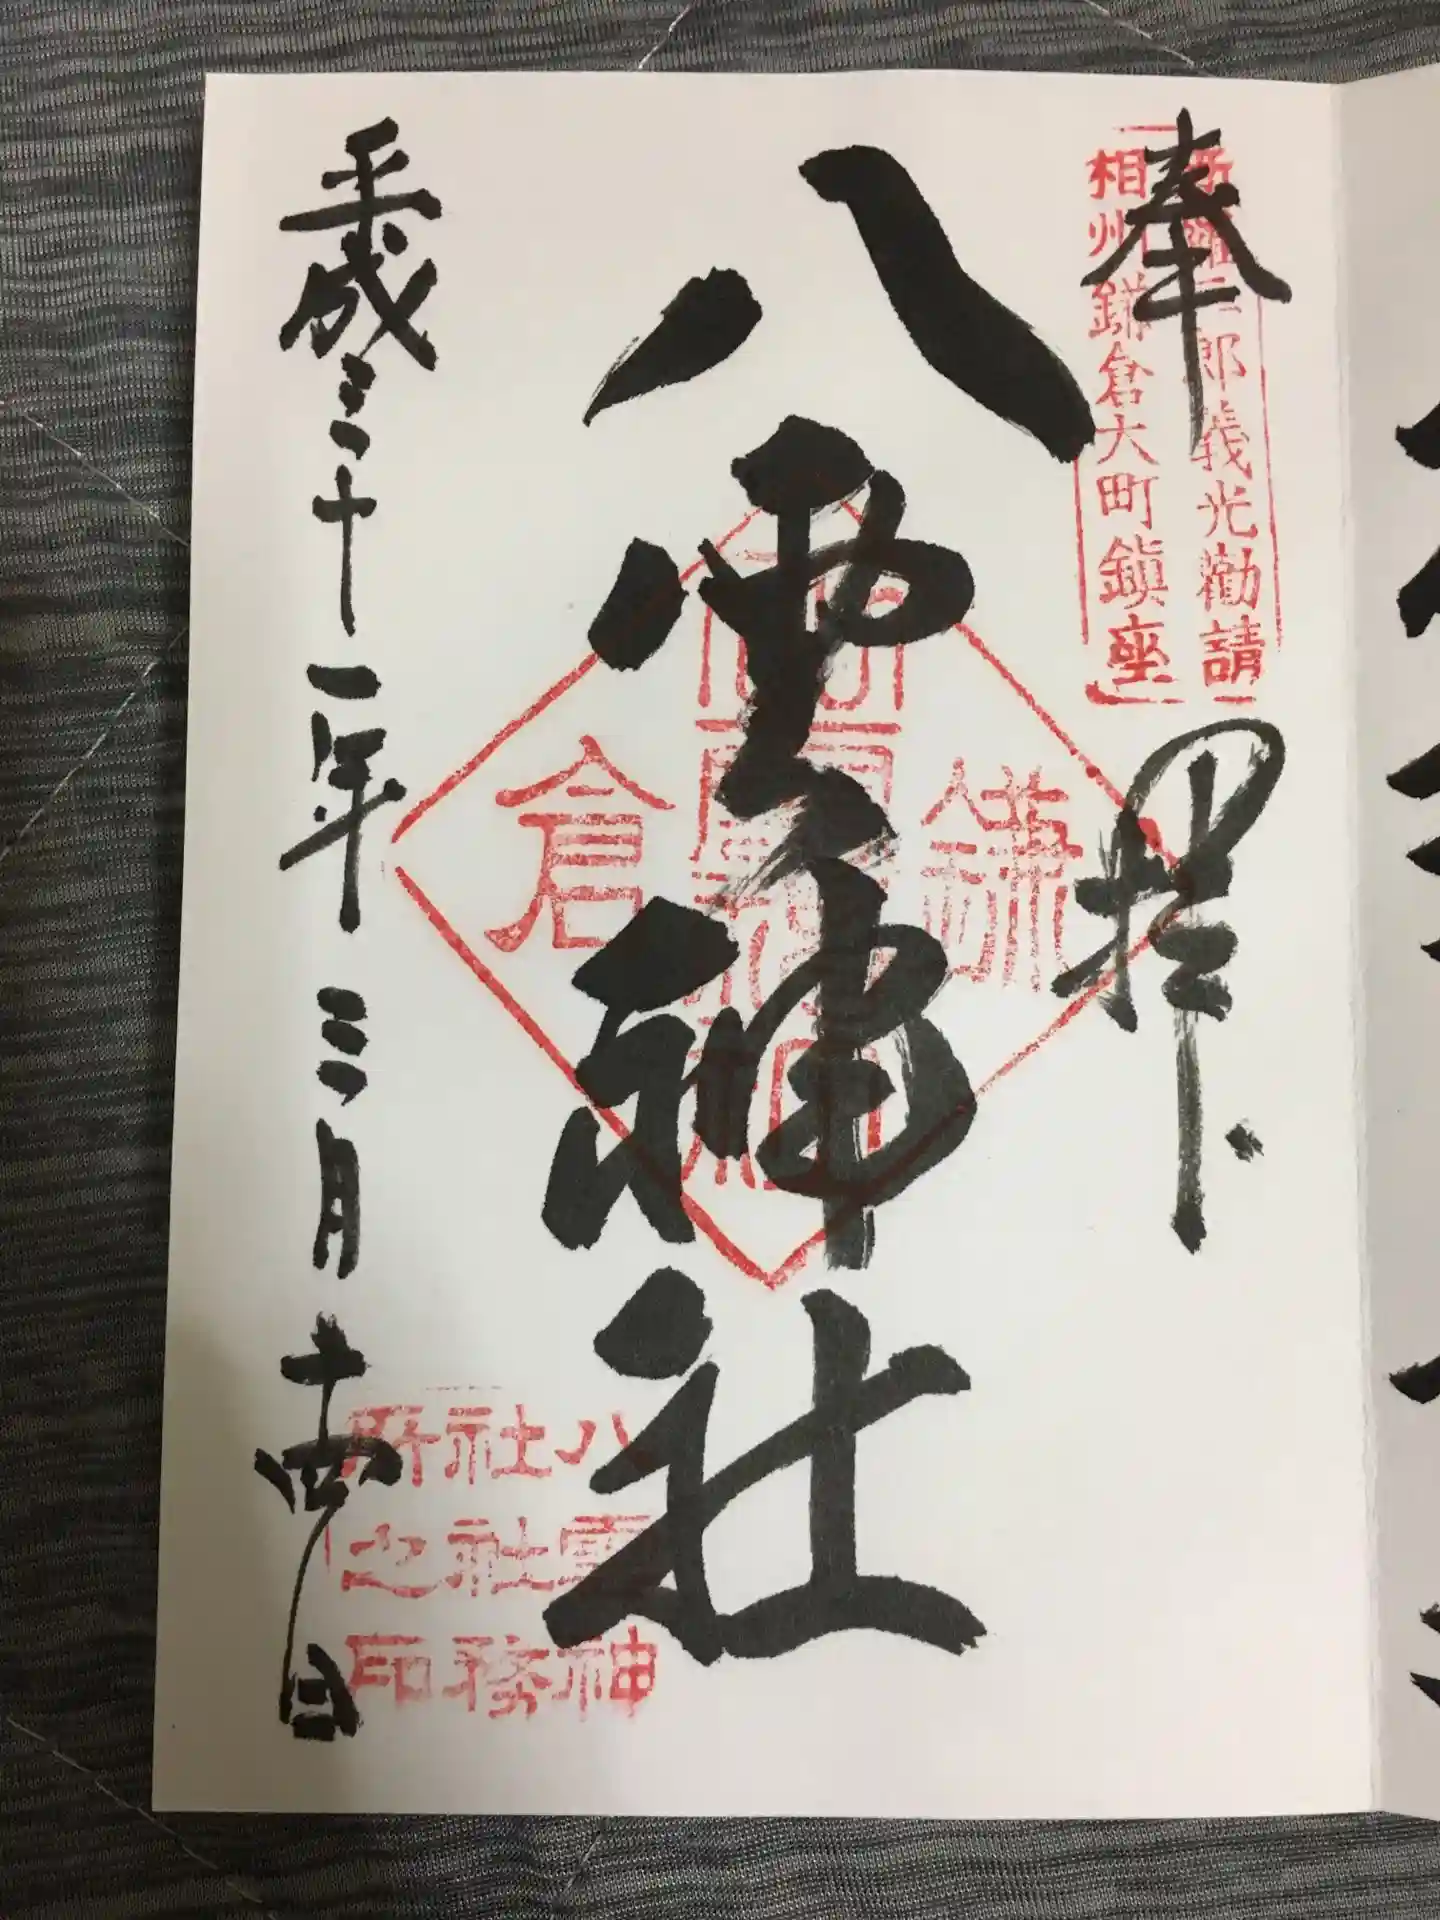 奉拝
新羅三郎義光勸請
相州鎌倉大町鎮座
八雲神社
鎌倉
八雲神
社社務
所之印
平成三十一年三月十四日